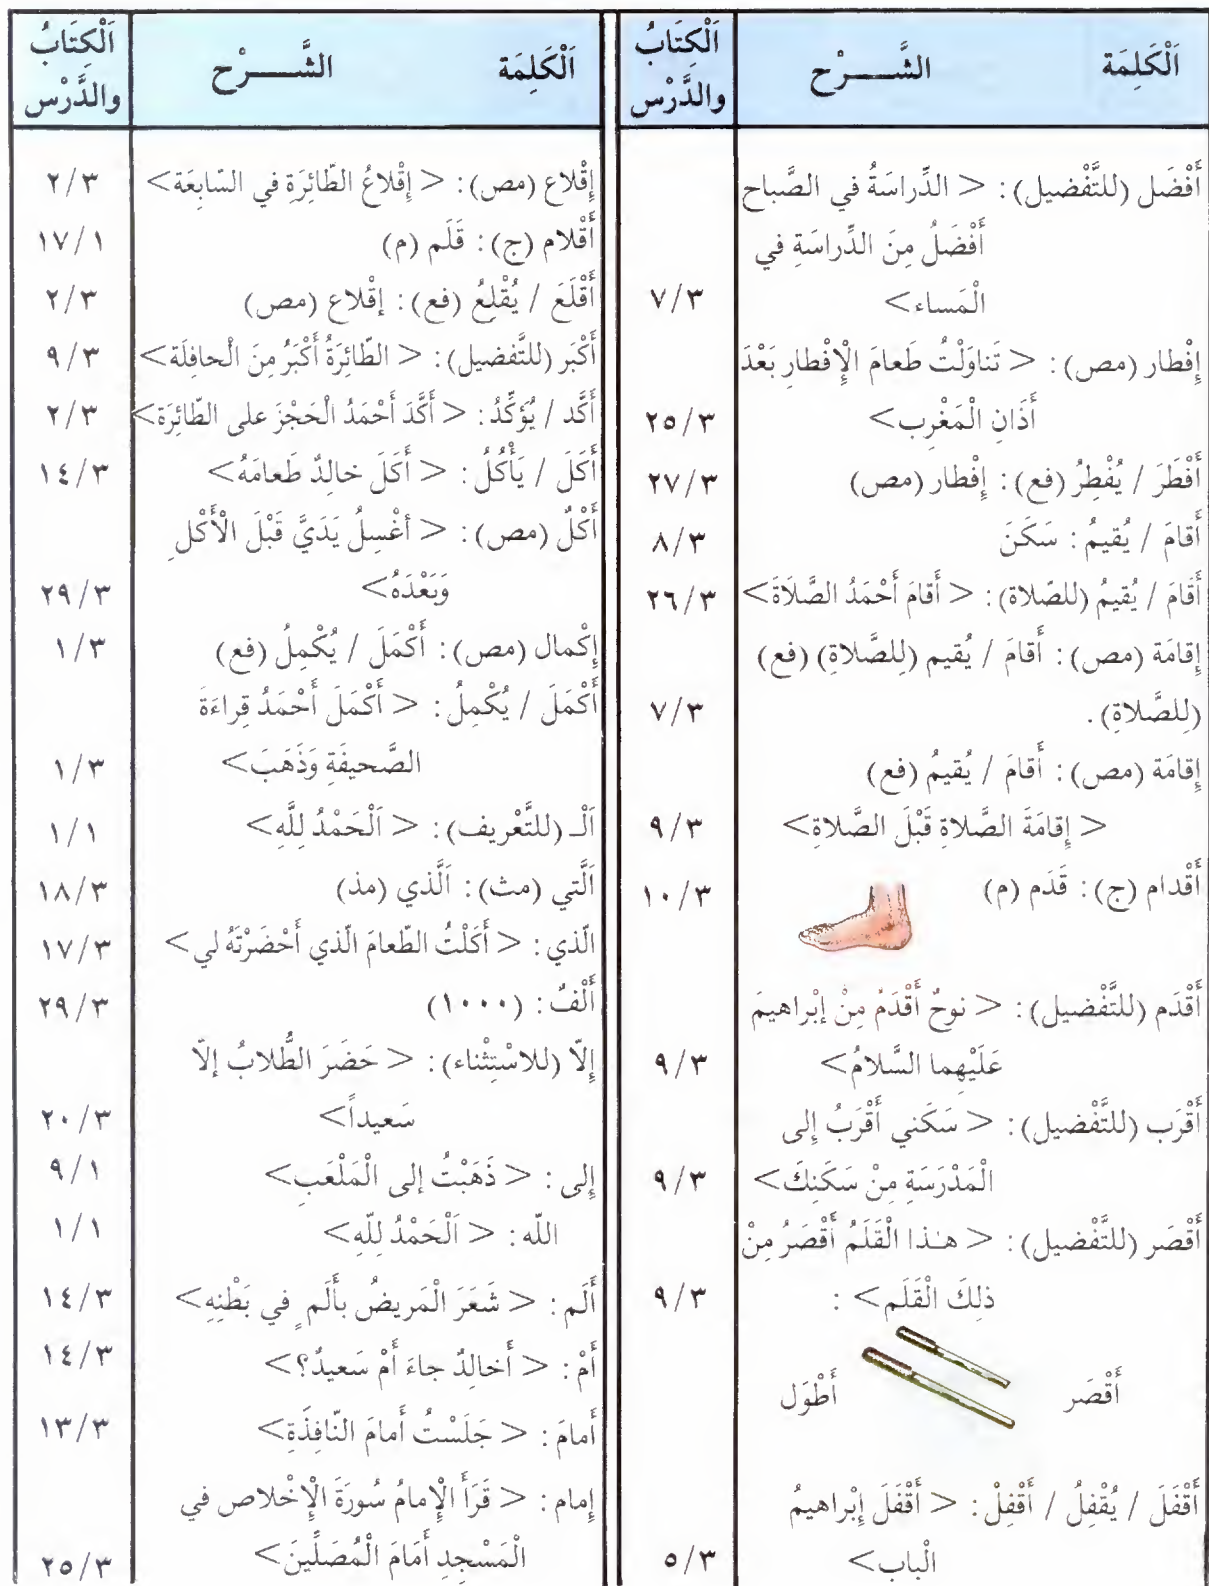 اَلْكَلِمَة الشَّـــرْح اَلْكِتَابُ والدَّرْس
أَفْضَل (للتَّفْضيل): < الدِّراسَةُ في الصَّباح
أَفْضَلُ مِنَ الدِّراسَةِ في
الْمَساء> ٧/٣
إِفْطار (مص): < تَناوَلْتُ طَعامَ الْإِفْطارِ بَعْدَ
أَذَانِ الْمَغْرِب> ٢٥/٣
أَفْطَرَ / يُفْطِرُ (فع): إِفْطار (مص) ٢٧/٣
أَقامَ / يُقيمُ: سَكَنَ ٨/٣
أَقَامَ / يُقيمُ (للصّلاة): < أَقامَ أَحْمَدُ الصَّلَاةَ> ٢٦/٣
إِقامَة (مص): أَقامَ / يُقيم (لِلصَّلاةِ) (فع)
(لِلصَّلاةِ). ٧/٣
إِقامَة (مص): أَقامَ / يُقيمُ (فع)
< إِقامَةَ الصَّلاةِ قَبْلَ الصَّلاةِ> ٩/٣
أَقْدام (ج): قَدَم (م) ١٠/٣
أَقْدَم (للتَّفْضيل): < نوحٌ أَقْدَمُ مِنْ إبْراهيمَ
عَلَيْهِما السَّلامُ> ٩/٣
أَقْرَب (للتَّفْضيل): < سَكَني أَقْرَبُ إلى
الْمَدْرَسَةِ مِنْ سَكَنِكَ> ٩/٣
أَقْصَر (للتَّفْضيل): < هـٰذا الْقَلَمُ أَقْصَرُ مِنْ
ذلِكَ الْقَلَم>: ٩/٣
أَقْصَر أَطْوَل
أَقْفَلَ / يُقْفِلُ / أَقْفِلْ: < أَقْفَلَ إِبْراهيمُ
الْباب> ٥/٣
اَلْكَلِمَة الشَّـــرْح اَلْكِتَابُ والدَّرْس
إِقْلاع (مص): < إِقْلاعُ الطّائِرَةِ في السّابِعَة> ٢/٣
أَقْلام (ج): قَلَم (م) ١٧/١
أَقْلَعَ / يُقْلِعُ (فع): إقْلاع (مص) ٢/٣
أَكْبَر (للتَّفضيل): < الطّائِرَةُ أَكْبَرُ مِنَ الْحافِلَة> ٩/٣
أَكَّد / يُؤَكِّدُ: < أَكَّدَ أَحْمَدُ الْحَجْزَ على الطّائِرَة> ٢/٣
أَكَلَ / يَأْكُلُ: < أَكَلَ خالِدٌ طَعامَهُ> ١٤/٣
أَكْلٌ (مص): < أغْسِلُ يَدَيَّ قَبْلَ الْأَكْلِ
وَبَعْدَهُ> ٢٩/٣
إِكْمال (مص): أَكْمَلَ / يُكْمِلُ (فع) ١/٣
أَكْمَلَ / يُكْمِلُ: < أَكْمَلَ أَحْمَدُ قِراءَةَ
الصَّحيفَةِ وَذَهَبَ> ١/٣
اَلْـ (للتَّعْريف): < اَلْحَمْدُ لِلَّهِ> ١/١
اَلَّتي (مث): اَلَّذي (مذ) ١٨/٣
الّذي: < أَكَلْتُ الطّعامَ الّذي أَحْضَرْتَهُ لي> ١٧/٣
أَلْفٌ: (١٠٠٠) ٢٩/٣
إِلّا (للاسْتِثْناء): < حَضَرَ الطُّلابُ إلّا
سَعيداً> ٢٠/٣
إلى: < ذَهَبْتُ إلى الْمَلْعَبِ> ٩/١
اللّه: < اَلْحَمْدُ لِلّهِ> ١/١
أَلَم: < شَعَرَ الْمَريضُ بأَلَمٍ في بَطْنِهِ> ١٤/٣
أَمْ: < أَخالِدٌ جاءَ أَمْ سَعيدٌ؟> ١٤/٣
أَمامَ: < جَلَسْتُ أَمامَ النّافِذَةِ> ١٣/٣
إِمام: < قَرَأَ الْإِمامُ سُورَةَ الْإِخْلاص في
الْمَسْجِدِ أَمَامَ الْمُصَلِّينَ> ٢٥/٣